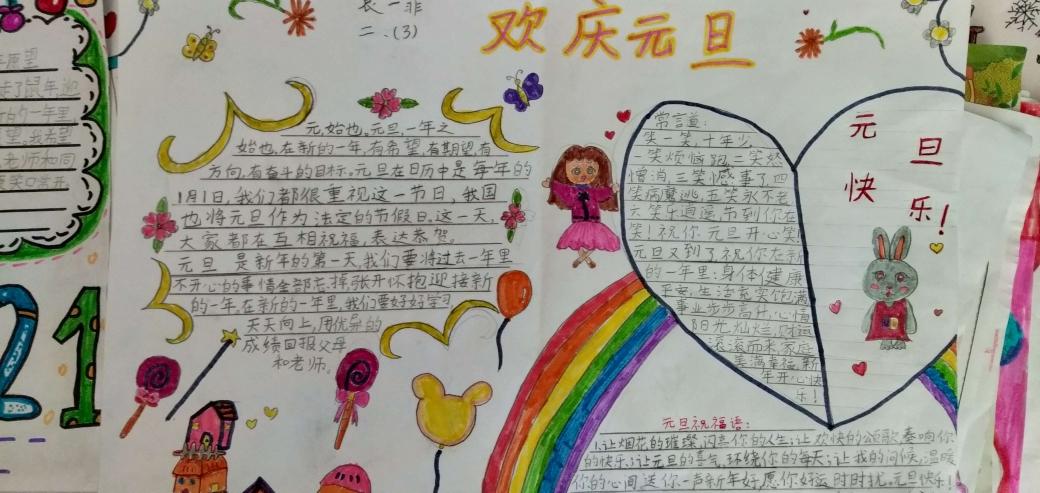 年愿望
走了鼠年,迎
的一年里
望。我希望
老师和同
笑口常开
21
二.(3)
欢庆元旦
元,始也。元旦,一年之
始也,在新的一年,有希望,有期望,有
方向,有奋斗的目标。元旦在日历中是每年的
1月1日,我们都很重视这一节日,我国
也将元旦作为法定的节假日。这一天,
大家都在互相祝福,表达恭贺。
元旦是新年的第一天,我们要将过去一年里
不开心的事情全部忘掉,张开怀抱迎接新
的一年,在新的一年里,我们要好好学习
天天向上,用优异的
成绩回报父母
和老师。
常言道:
笑一笑,十年少,
一笑烦恼跑二笑怒
憎消,三笑憾事了四
笑病魔逃,五笑永不老
六笑乐逍遥,节到你在
笑!祝你元旦开心笑!
元旦又到了,祝你在新
的一年里:身体健康
平安,生活充实饱满
事业步步高升,心情
阳光灿烂,财运
滚滚而来家庭
美满幸福,新
年开心快
乐!
元旦
快乐!
元旦祝福语:
1.让烟花的璀璨,闪亮你的人生;让欢快的颂歌,奏响你
的快乐;让元旦的喜气,环绕你的每天;让我的问候,温暖
你的心间,送你一声新年好,愿你好运时时扰。元旦快乐!